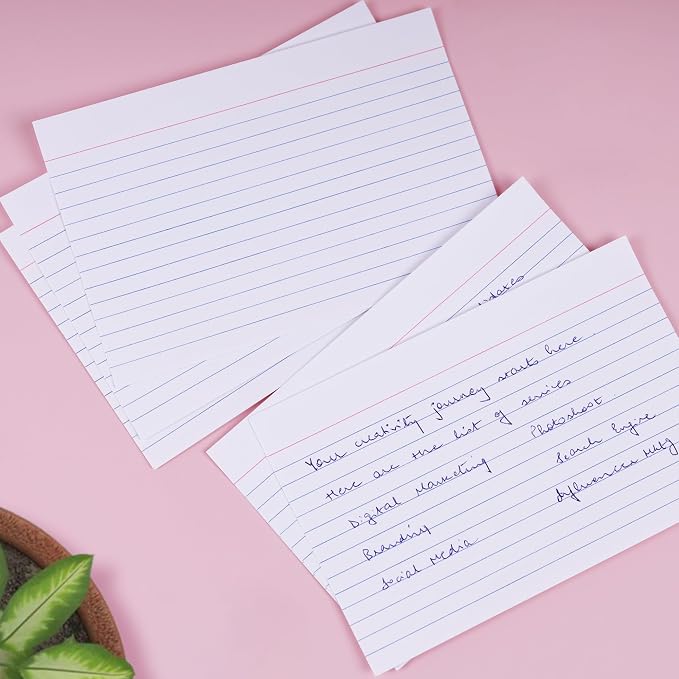 updates
Your creativity journey starts here.
Here are the list of services
Digital Marketing Photoshoot
Branding Search Engine
Social Media Influencer Mktg